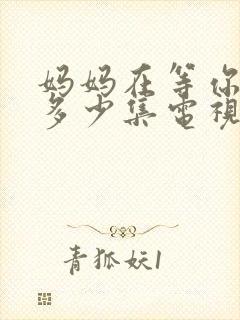 妈妈在等你
多少集電視
青狐妖1